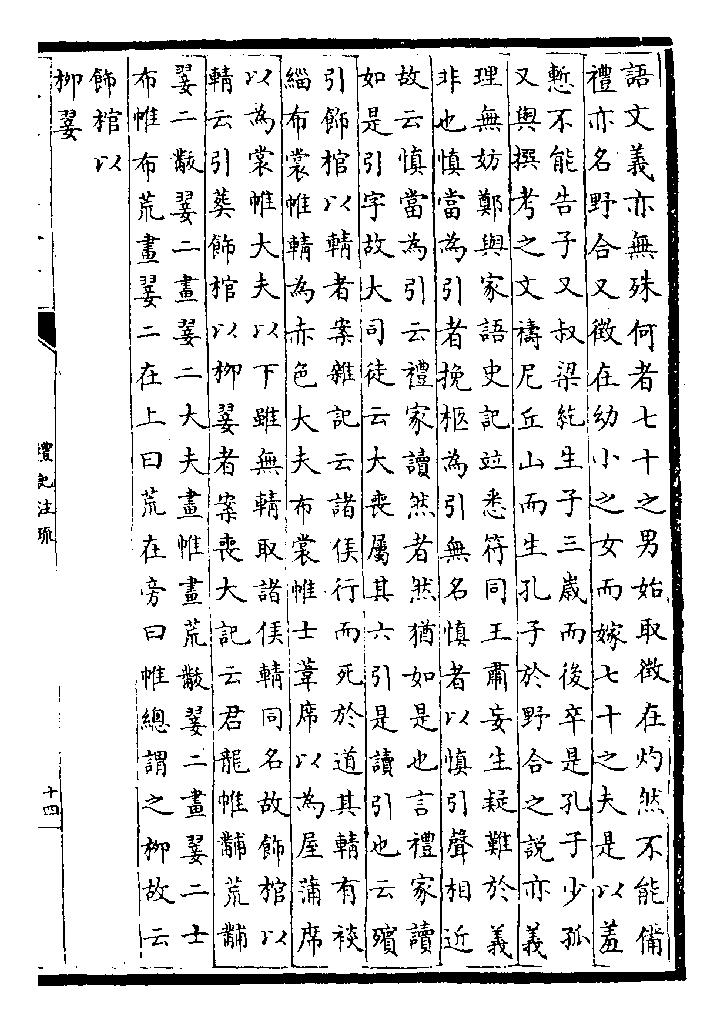 語文義亦無殊何者七十之男始取徵在灼然不能備
禮亦名野合又徵在幼小之女而嫁七十之夫是以羞
慙不能告子又叔梁紇生子三歲而後卒是孔子少孤
又與撰考之文禱尼丘山而生孔子於野合之說亦義
理無妨鄭與家語史記竝悉符同王肅妄生疑難於義
非也慎當為引者挽柩為引無名慎者以慎引聲相近
故云慎當為引云禮家讀然者然猶如是也言禮家讀
如是引字故大司徒云大喪屬其六引是讀引也云殯
引飾棺以輤者案雜記云諸侯行而死於道其輤有裧
緇布裳帷輤為赤色大夫布裳帷士葦席以為屋蒲席
以為裳帷大夫以下雖無輤取諸侯輤同名故飾棺以
輤云引葬飾棺以柳翣者案喪大記云君龍帷黼荒黼
翣二黻翣二畫翣二大夫畫帷畫荒黻翣二畫翣二士
布帷布荒畫翣二在上曰荒在旁曰帷總謂之柳故云
飾棺以
柳翣
禮記注疏
十四